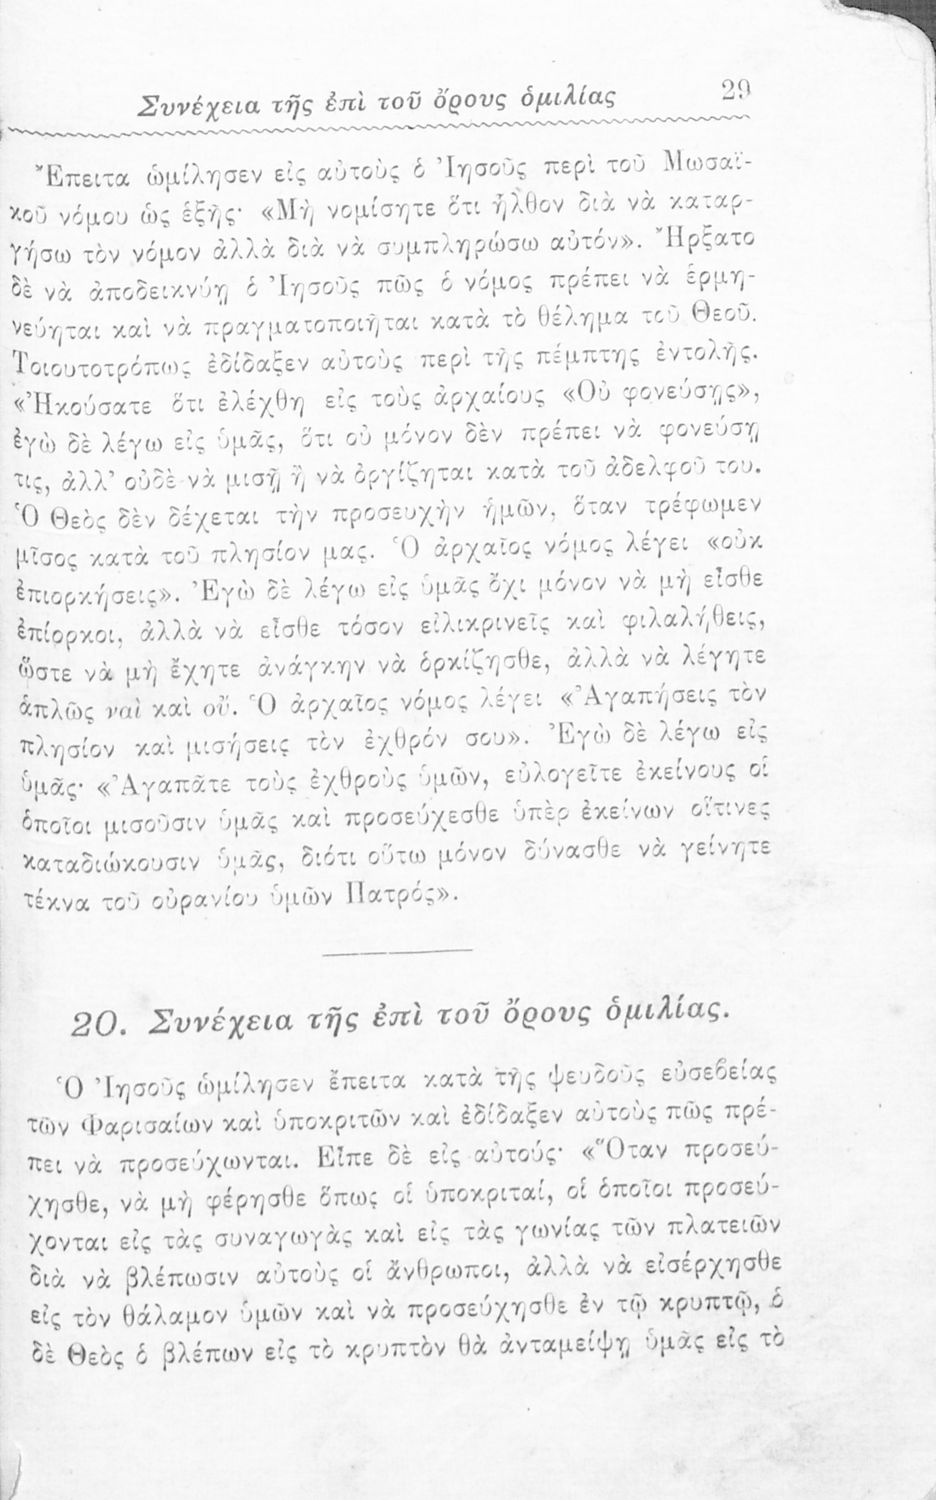 Συνέχεια τῆς ἐπὶ τοῦ ὄρους ὁμιλίας 29
Ἔπειτα ὡμίλησεν εἰς αὐτοὺς ὁ Ἰησοῦς περὶ τοῦ Μωσαϊ-
κοῦ νόμου ὡς ἑξῆς· «Μὴ νομίσητε ὅτι ἦλθον διὰ νὰ καταρ-
γήσω τὸν νόμον ἀλλὰ διὰ νὰ συμπληρώσω αὐτόν». Ἤρξατο
δὲ νὰ ἀποδεικνύῃ ὁ Ἰησοῦς πῶς ὁ νόμος πρέπει νὰ ἑρμη-
νεύηται καὶ νὰ πραγματοποιῆται κατὰ τὸ θέλημα τοῦ Θεοῦ.
Τοιουτοτρόπως ἐδίδαξεν αὐτοὺς περὶ τῆς πέμπτης ἐντολῆς.
«Ἠκούσατε ὅτι ἐλέχθη εἰς τοὺς ἀρχαίους «Οὐ φονεύσῃς»,
ἐγὼ δὲ λέγω εἰς ὑμᾶς, ὅτι οὐ μόνον δὲν πρέπει νὰ φονεύσῃ
τις, ἀλλ’ οὐδὲ νὰ μισῇ ἢ νὰ ὀργίζηται κατὰ τοῦ ἀδελφοῦ του.
Ὁ Θεὸς δὲν δέχεται τὴν προσευχὴν ἡμῶν, ὅταν τρέφωμεν
μῖσος κατὰ τοῦ πλησίον μας. Ὁ ἀρχαῖος νόμος λέγει «οὐκ
ἐπιορκήσεις». Ἐγὼ δὲ λέγω εἰς ὑμᾶς ὄχι μόνον νὰ μὴ εἶσθε
ἐπίορκοι, ἀλλὰ νὰ εἶσθε τόσον εἰλικρινεῖς καὶ φιλαλήθεις,
ὥστε νὰ μὴ ἔχητε ἀνάγκην νὰ ὁρκίζησθε, ἀλλὰ νὰ λέγητε
ἁπλῶς ναὶ καὶ οὔ. Ὁ ἀρχαῖος νόμος λέγει «Ἀγαπήσεις τὸν
πλησίον καὶ μισήσεις τὸν ἐχθρόν σου». Ἐγὼ δὲ λέγω εἰς
ὑμᾶς· «Ἀγαπᾶτε τοὺς ἐχθροὺς ὑμῶν, εὐλογεῖτε ἐκείνους οἱ
ὁποῖοι μισοῦσιν ὑμᾶς καὶ προσεύχεσθε ὑπὲρ ἐκείνων οἵτινες
καταδιώκουσιν ὑμᾶς, διότι οὕτω μόνον δύνασθε νὰ γείνητε
τέκνα τοῦ οὐρανίου ὑμῶν Πατρός».
20. Συνέχεια τῆς ἐπὶ τοῦ ὄρους ὁμιλίας.
Ὁ Ἰησοῦς ὡμίλησεν ἔπειτα κατὰ τῆς ψευδοῦς εὐσεβείας
τῶν Φαρισαίων καὶ ὑποκριτῶν καὶ ἐδίδαξεν αὐτοὺς πῶς πρέ-
πει νὰ προσεύχωνται. Εἶπε δὲ εἰς αὐτούς· «Ὅταν προσεύ-
χησθε, νὰ μὴ φέρησθε ὅπως οἱ ὑποκριταί, οἱ ὁποῖοι προσεύ-
χονται εἰς τὰς συναγωγὰς καὶ εἰς τὰς γωνίας τῶν πλατειῶν
διὰ νὰ βλέπωσιν αὐτοὺς οἱ ἄνθρωποι, ἀλλὰ νὰ εἰσέρχησθε
εἰς τὸν θάλαμον ὑμῶν καὶ νὰ προσεύχησθε ἐν τῷ κρυπτῷ, ὁ
δὲ Θεὸς ὁ βλέπων εἰς τὸ κρυπτὸν θὰ ἀνταμείψῃ ὑμᾶς εἰς τὸ